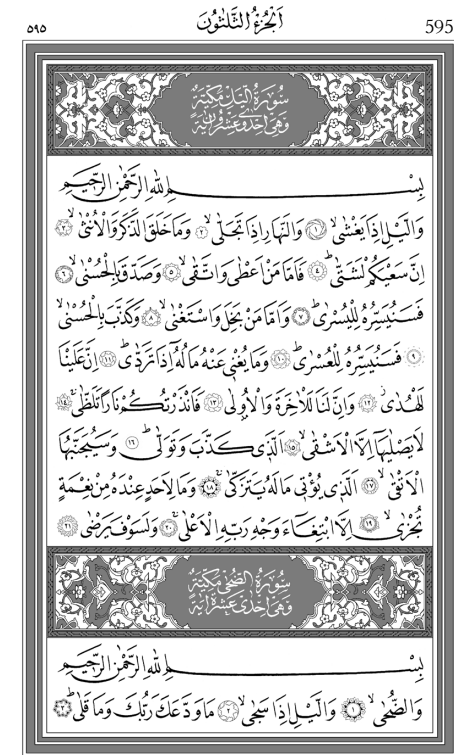 ٥٩٥ اَلْجُزْءُ الثَّلٰثُونَ 595
سُورَةُ الَّيْلِ مَكِّيَّةٌ
وَهِيَ اِحْدٰى وَعِشْرُونَ اٰيَةً
بِسْمِ اللّٰهِ الرَّحْمٰنِ الرَّحٖيمِ
وَالَّيْلِ اِذَا يَغْشٰىۙ ﴿١﴾ وَالنَّهَارِ اِذَا تَجَلّٰىۙ ﴿٢﴾ وَمَا خَلَقَ الذَّكَرَ وَالْاُنْثٰىۙ ﴿٣﴾
اِنَّ سَعْيَكُمْ لَشَتّٰىۜ ﴿٤﴾ فَاَمَّا مَنْ اَعْطٰى وَاتَّقٰىۙ ﴿٥﴾ وَصَدَّقَ بِالْحُسْنٰىۙ ﴿٦﴾
فَسَنُيَسِّرُهُ لِلْيُسْرٰىۜ ﴿٧﴾ وَاَمَّا مَنْ بَخِلَ وَاسْتَغْنٰىۙ ﴿٨﴾ وَكَذَّبَ بِالْحُسْنٰىۙ
﴿٩﴾ فَسَنُيَسِّرُهُ لِلْعُسْرٰىۜ ﴿١٠﴾ وَمَا يُغْنٖي عَنْهُ مَالُهُٓ اِذَا تَرَدّٰىۜ ﴿١١﴾ اِنَّ عَلَيْنَا
لَلْهُدٰىۘ ﴿١٢﴾ وَاِنَّ لَنَا لَلْاٰخِرَةَ وَالْاُو۫لٰى ﴿١٣﴾ فَاَنْذَرْتُكُمْ نَارًا تَلَظّٰىۚ ﴿١٤﴾
لَا يَصْلٰيهَٓا اِلَّا الْاَشْقٰىۙ ﴿١٥﴾ اَلَّذٖي كَذَّبَ وَتَوَلّٰىۜ ﴿١٦﴾ وَسَيُجَنَّبُهَا
الْاَتْقٰىۙ ﴿١٧﴾ اَلَّذٖي يُؤْتٖي مَالَهُ يَتَزَكّٰىۚ ﴿١٨﴾ وَمَا لِاَحَدٍ عِنْدَهُ مِنْ نِعْمَةٍ
تُجْزٰىۙ ﴿١٩﴾ اِلَّا ابْتِغَٓاءَ وَجْهِ رَبِّهِ الْاَعْلٰىۚ ﴿٢٠﴾ وَلَسَوْفَ يَرْضٰى ﴿٢١﴾
سُورَةُ الضُّحٰى مَكِّيَّةٌ
وَهِيَ اِحْدٰى عَشْرَةَ اٰيَةً
بِسْمِ اللّٰهِ الرَّحْمٰنِ الرَّحٖيمِ
وَالضُّحٰىۙ ﴿١﴾ وَالَّيْلِ اِذَا سَجٰىۙ ﴿٢﴾ مَا وَدَّعَكَ رَبُّكَ وَمَا قَلٰىۜ ﴿٣﴾